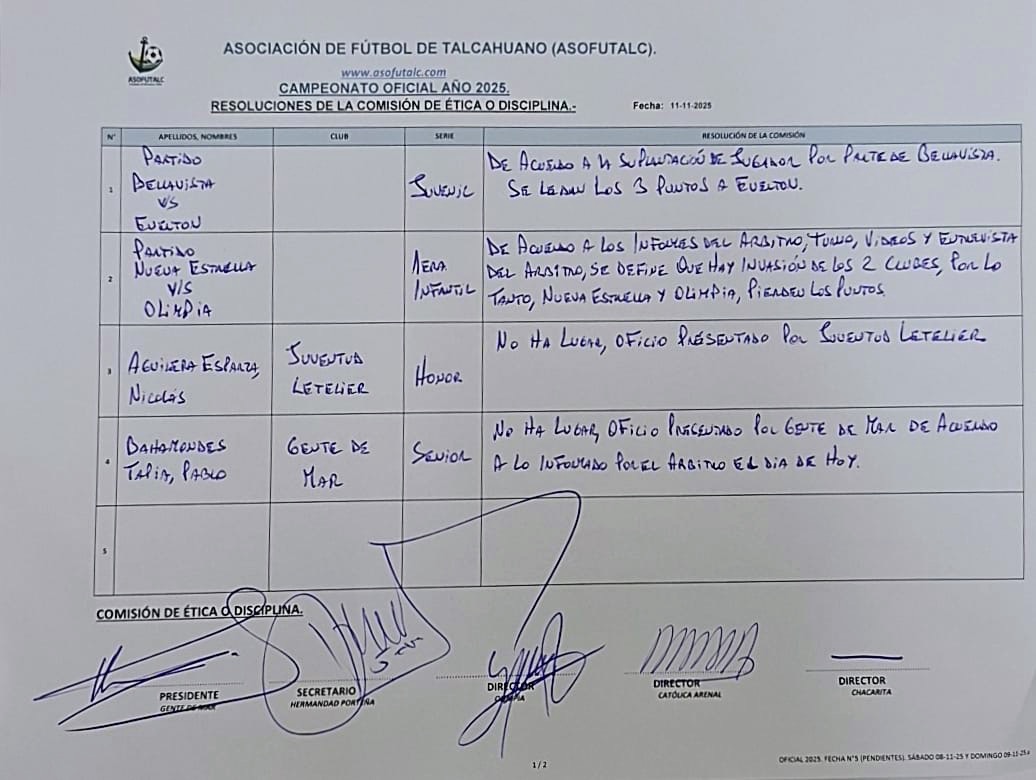 ASOFUTALC
ASOCIACIÓN DE FÚTBOL DE TALCAHUANO (ASOFUTALC).
www.asofutalc.com
CAMPEONATO OFICIAL AÑO 2025.
RESOLUCIONES DE LA COMISIÓN DE ÉTICA O DISCIPLINA.- Fecha: 11-11-2025
N° APELLIDOS, NOMBRES CLUB SERIE RESOLUCIÓN DE LA COMISIÓN
1
PARTIDO
BELLAVISTA
V/S
EVERTON
JUVENIL
DE ACUERDO A LA SUPLANTACIÓN DE JUGADOR POR PARTE DE BELLAVISTA.
SE LE DAN LOS 3 PUNTOS A EVERTON.
2
PARTIDO
NUEVA ESTRELLA
V/S
OLIMPIA
1ERA
INFANTIL
DE ACUERDO A LOS INFORMES DEL ARBITRO, TURNO, VIDEOS Y ENTREVISTA
DEL ARBITRO, SE DEFINE QUE HAY INVASIÓN DE LOS 2 CLUBES, POR LO
TANTO, NUEVA ESTRELLA Y OLIMPIA, PIERDEN LOS PUNTOS.
3
AGUILERA ESPARZA,
NICOLÁS
JUVENTUD
LETELIER
HONOR
NO HA LUGAR, OFICIO PRESENTADO POR JUVENTUD LETELIER
4
BAHAMONDES
TAPIA, PABLO
GENTE DE
MAR
SENIOR
NO HA LUGAR, OFICIO PRESENTADO POR GENTE DE MAR DE ACUERDO
A LO INFORMADO POR EL ARBITRO EL DIA DE HOY.
5
COMISIÓN DE ÉTICA O DISCIPLINA.
PRESIDENTE
GENTE DE MAR
SECRETARIO
HERMANDAD PORTEÑA
DIRECTOR
OLIMPIA
DIRECTOR
CATÓLICA ARENAL
DIRECTOR
CHACARITA
1 / 2
OFICIAL 2025. FECHA N°5 (PENDIENTES). SÁBADO 08-11-25 Y DOMINGO 09-11-25